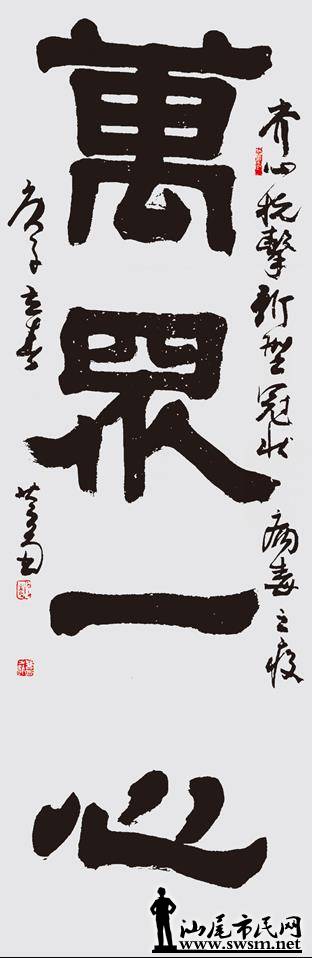 齐心抗擊新型冠状病毒之疫
萬眾一心
庚子立春
汕尾市民网
www.swsm.net